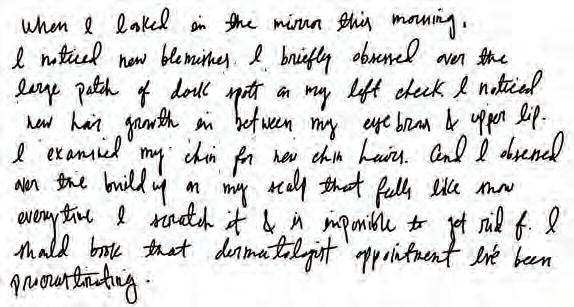 When I looked in the mirror this morning.
I noticed new blemishes. I briefly obsessed over the
large patch of dark spots on my left cheek. I noticed
new hair growth in between my eyebrows & upper lip.
I examined my chin for new chin hairs. And I obsessed
over the build up on my scalp that falls like snow
everytime I scratch it & is impossible to get rid of. I
should book that dermatologist appointment I've been
procrastinating.